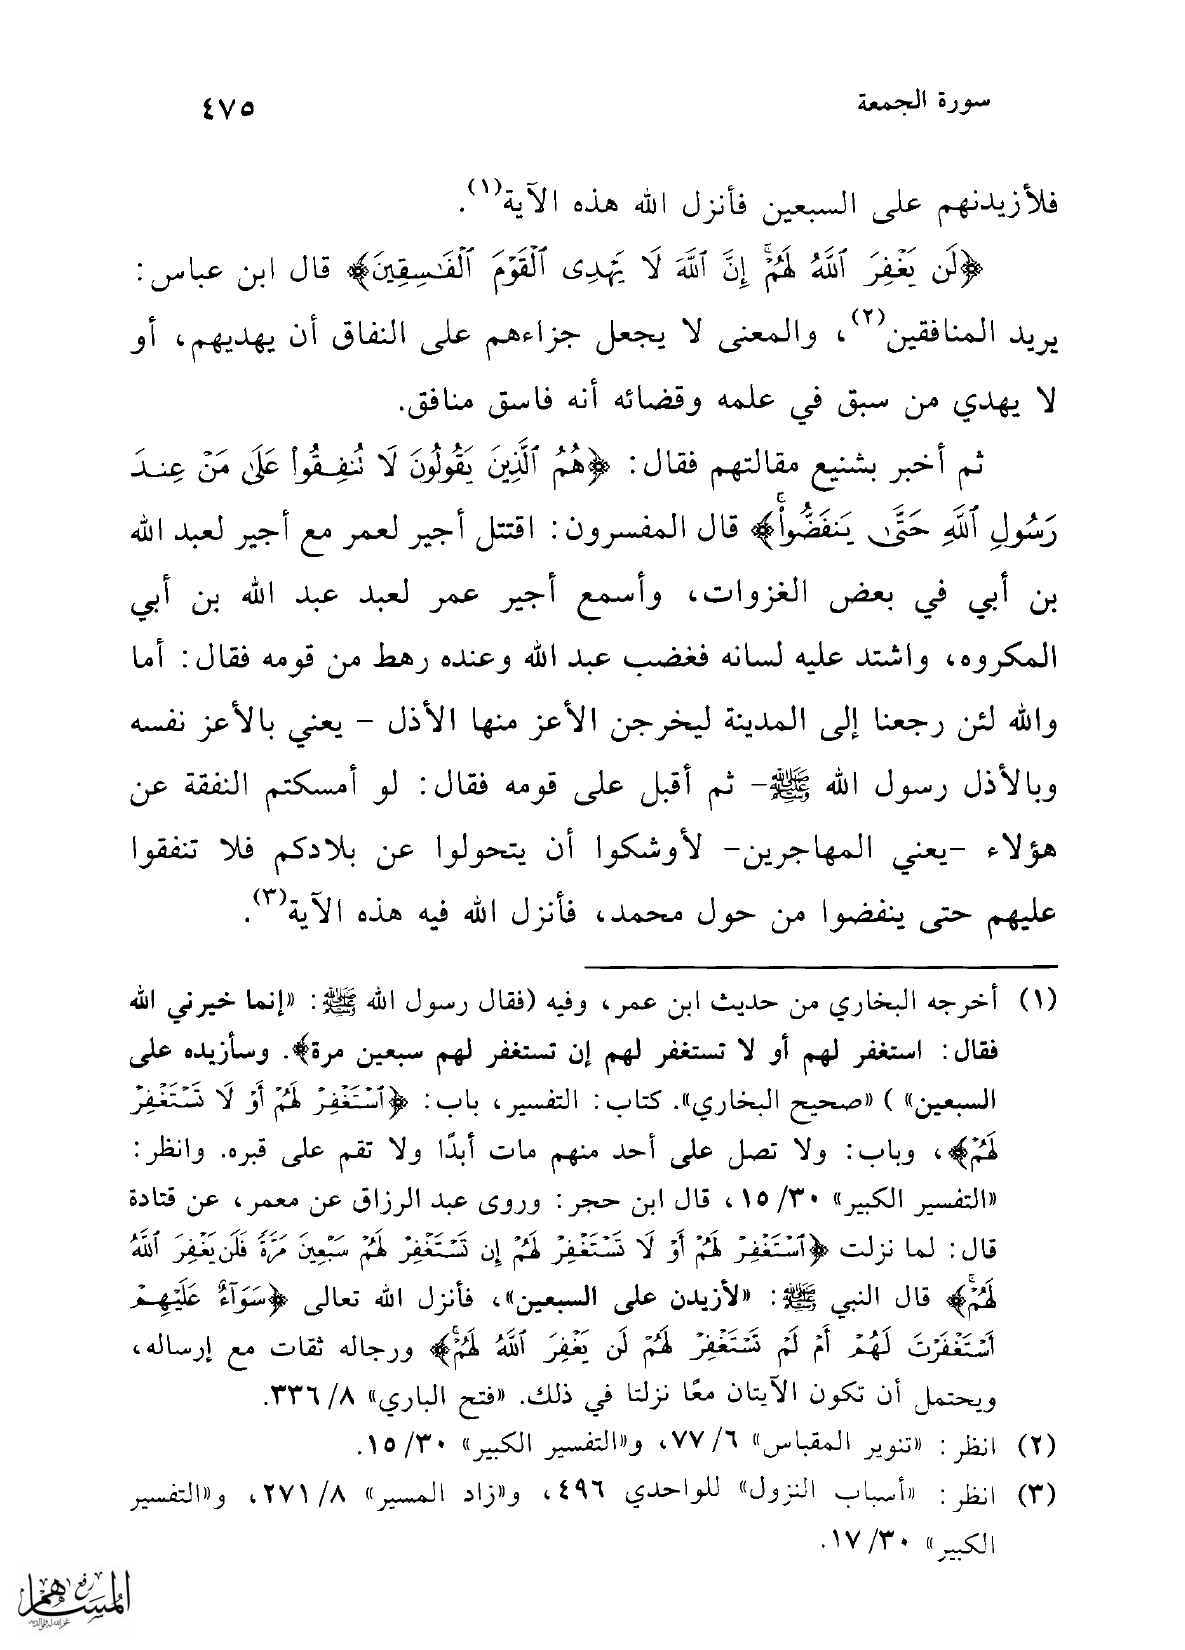 سورة الجمعة ٤٧٥
فلأزيدنهم على السبعين فأنزل الله هذه الآية(١).
﴿لَن يَغْفِرَ ٱللَّهُ لَهُمْۚ إِنَّ ٱللَّهَ لَا يَهْدِى ٱلْقَوْمَ ٱلْفَٰسِقِينَ﴾ قال ابن عباس:
يريد المنافقين(٢)، والمعنى لا يجعل جزاءهم على النفاق أن يهديهم، أو
لا يهدي من سبق في علمه وقضائه أنه فاسق منافق.
ثم أخبر بشنيع مقالتهم فقال: ﴿هُمُ ٱلَّذِينَ يَقُولُونَ لَا تُنفِقُوا۟ عَلَىٰ مَنْ عِندَ
رَسُولِ ٱللَّهِ حَتَّىٰ يَنفَضُّوا۟ۗ﴾ قال المفسرون: اقتتل أجير لعمر مع أجير لعبد الله
بن أبي في بعض الغزوات، وأسمع أجير عمر لعبد عبد الله بن أبي
المكروه، واشتد عليه لسانه فغضب عبد الله وعنده رهط من قومه فقال: أما
والله لئن رجعنا إلى المدينة ليخرجن الأعز منها الأذل - يعني بالأعز نفسه
وبالأذل رسول الله ﷺ- ثم أقبل على قومه فقال: لو أمسكتم النفقة عن
هؤلاء -يعني المهاجرين- لأوشكوا أن يتحولوا عن بلادكم فلا تنفقوا
عليهم حتى ينفضوا من حول محمد، فأنزل الله فيه هذه الآية(٣).
(١) أخرجه البخاري من حديث ابن عمر، وفيه (فقال رسول الله ﷺ: «إنما خيرني الله
فقال: استغفر لهم أو لا تستغفر لهم إن تستغفر لهم سبعين مرة﴾. وسأزيده على
السبعين» ) «صحيح البخاري». كتاب: التفسير، باب: ﴿ٱسْتَغْفِرْ لَهُمْ أَوْ لَا تَسْتَغْفِرْ
لَهُمْ﴾، وباب: ولا تصل على أحد منهم مات أبدًا ولا تقم على قبره. وانظر:
«التفسير الكبير» ٣٠/ ١٥، قال ابن حجر: وروى عبد الرزاق عن معمر، عن قتادة
قال: لما نزلت ﴿ٱسْتَغْفِرْ لَهُمْ أَوْ لَا تَسْتَغْفِرْ لَهُمْ إِن تَسْتَغْفِرْ لَهُمْ سَبْعِينَ مَرَّةً فَلَن يَغْفِرَ ٱللَّهُ
لَهُمْۚ﴾ قال النبي ﷺ: «لأزيدن على السبعين»، فأنزل الله تعالى ﴿سَوَآءٌ عَلَيْهِمْ
أَسْتَغْفَرْتَ لَهُمْ أَمْ لَمْ تَسْتَغْفِرْ لَهُمْ لَن يَغْفِرَ ٱللَّهُ لَهُمْۚ﴾ ورجاله ثقات مع إرساله،
ويحتمل أن تكون الآيتان معًا نزلتا في ذلك. «فتح الباري» ٨/ ٣٣٦.
(٢) انظر: «تنوير المقباس» ٦/ ٧٧، و«التفسير الكبير» ٣٠/ ١٥.
(٣) انظر: «أسباب النزول» للواحدي ٤٩٦، و«زاد المسير» ٨/ ٢٧١، و«التفسير
الكبير» ٣٠/ ١٧.
رفع
المساهم